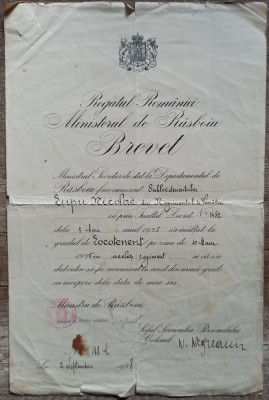 Regatul României
Ministerul de Răsboiu
Brevet
Ministrul Secretar de stat la Departamentul de
Răsboiu face cunoscut Sublocotenentului
Lupu Nicolae din Regimentul
că prin Înaltul Decret No.
dela 8 Mai anul 1925 s'a înălțat la
gradul de Locotenent pe ziua de 10 Mai
1925 în același regiment și că s'a
dat ordin să fie recunoscut în acest din urmă grad
cu începere dela data de mai sus.
Ministru de Răsboiu
Șeful Serviciului Personalului
Colonel
La 2 septembrie